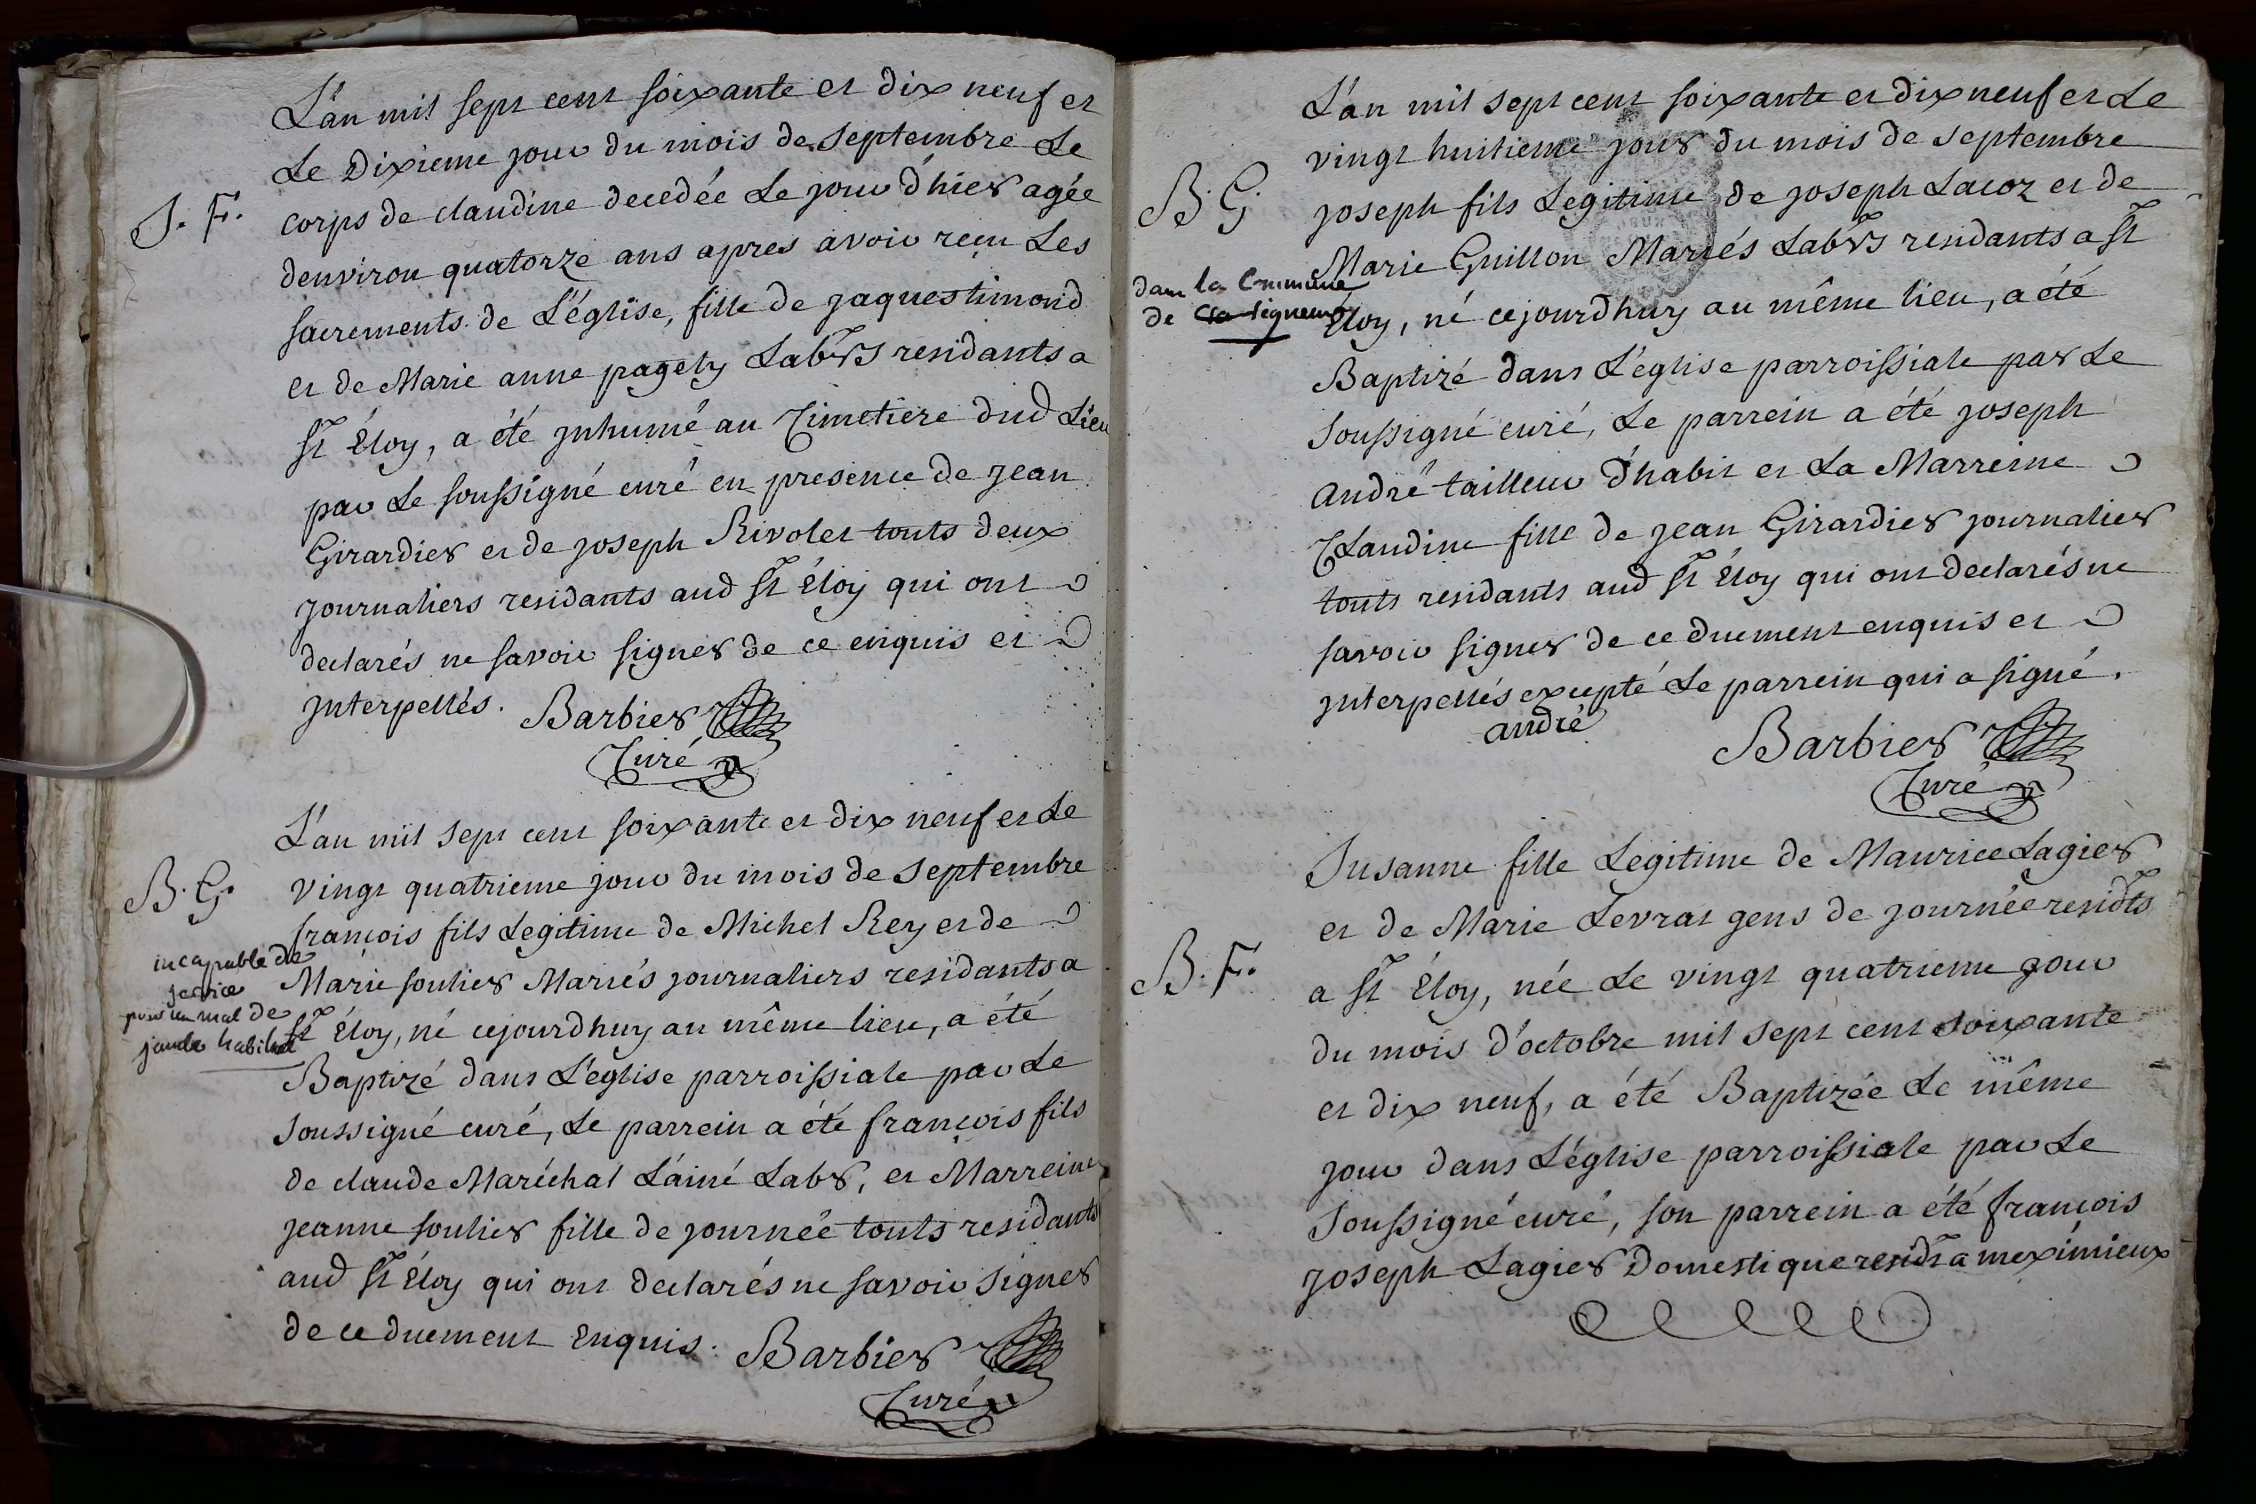 L'an mil sept cent soixante et dix neuf et
Le Dixieme jour du mois de septembre Le
S. F.
corps de claudine decedée Le jour d'hier agée
denviron quatorze ans apres avoir reçu Les
sacrements de L'église, fille de jaques timond
et de Marie anne pagely Labrs residants a
St Éloy, a été jnhumé au Cimetiere dud Lieu
par Le soussigné curé en presence de jean
Girardier et de joseph Rivolet touts deux
journaliers residants aud St Éloy qui ont
declarés ne savoir signer de ce enquis et
jnterpellés. Barbier
Curé
L'an mil sept cent soixante et dix neuf et Le
B. G.
vingt quatrieme jour du mois de septembre
françois fils Legitime de Michel Rey et de
incapable de
service
pour un mal de
jambe habituel
Marie soulier Mariés journaliers residants a
St Éloy, né cejourdhuy au même lieu, a été
Baptizé dans L'église parroissiale par Le
soussigné curé, Le parrein a été françois fils
de claude Maréchal L'ainé Labr, et Marreine
jeanne soulier fille de journée touts residants
aud St Éloy qui ont declarés ne savoir signer
de ce duement enquis. Barbier
Curé
L'an mil sept cent soixante et dix neuf et Le
vingt huitieme jour du mois de septembre
B. G.
joseph fils Legitime de joseph Lacoz et de
Marie Guillon Mariés Labrs residants a St
dans la Commune
de
Éloy, né cejourdhuy au même lieu, a été
Baptizé dans L'église parroissiale par Le
soussigné curé, Le parrein a été joseph
andré tailleur d'habit et La Marreine
Claudine fille de jean Girardier journalier
touts residants aud St Éloy qui ont declarés ne
savoir signer de ce duement enquis et
jnterpellés excepté Le parrein qui a signé.
andré
Barbier
Curé
Susanne fille Legitime de Maurice Lagier
et de Marie Levrat gens de journée residts
B. F.
a St Éloy, née Le vingt quatrieme jour
du mois d'octobre mil sept cent soixante
et dix neuf, a été Baptizée Le même
jour dans L'église parroissiale par Le
soussigné curé, son parrein a été françois
joseph Lagier Domestique residt a meximieux